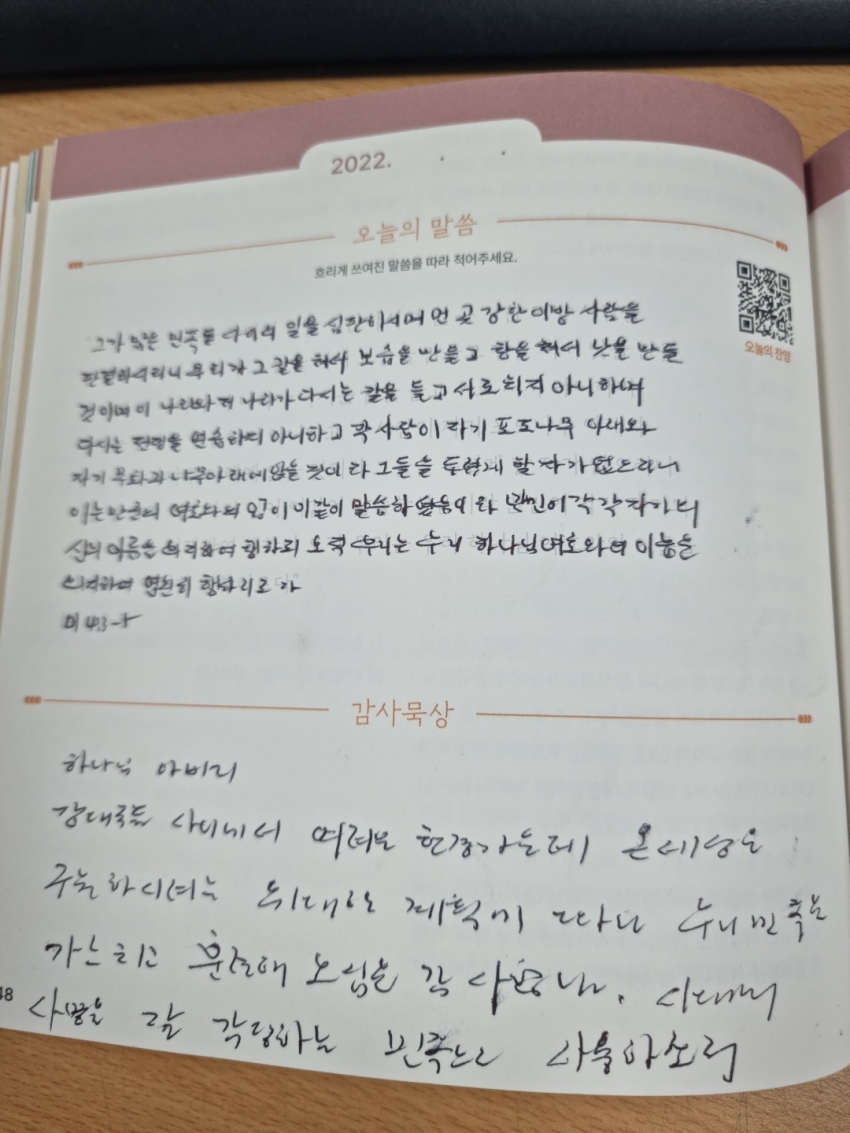 2022. . .
오늘의 말씀
흐리게 쓰여진 말씀을 따라 적어주세요.
오늘의 찬양
그가 많은 민족들 사이의 일을 심판하시며 먼 곳 강한 이방 사람을
판결하시리니 무리가 그 칼을 쳐서 보습을 만들고 창을 쳐서 낫을 만들
것이며 이 나라와 저 나라가 다시는 칼을 들고 서로 치지 아니하며
다시는 전쟁을 연습하지 아니하고 각 사람이 자기 포도나무 아래와
자기 무화과나무 아래에 앉을 것이라 그들을 두렵게 할 자가 없으리니
이는 만군의 여호와의 입이 이같이 말씀하셨음이라 만민이 각각 자기의
신의 이름을 의지하여 행하되 오직 우리는 우리 하나님 여호와의 이름을
의지하여 영원히 행하리로다
미 4:3-5
감사묵상
하나님 아버지
강대국들 사이에서 어려운 환경가운데 온세상을
구원하시려는 위대한 계획에 따라 우리민족을
각 사명
사명을 잘 감당하는 민족으로 사용하소서
48